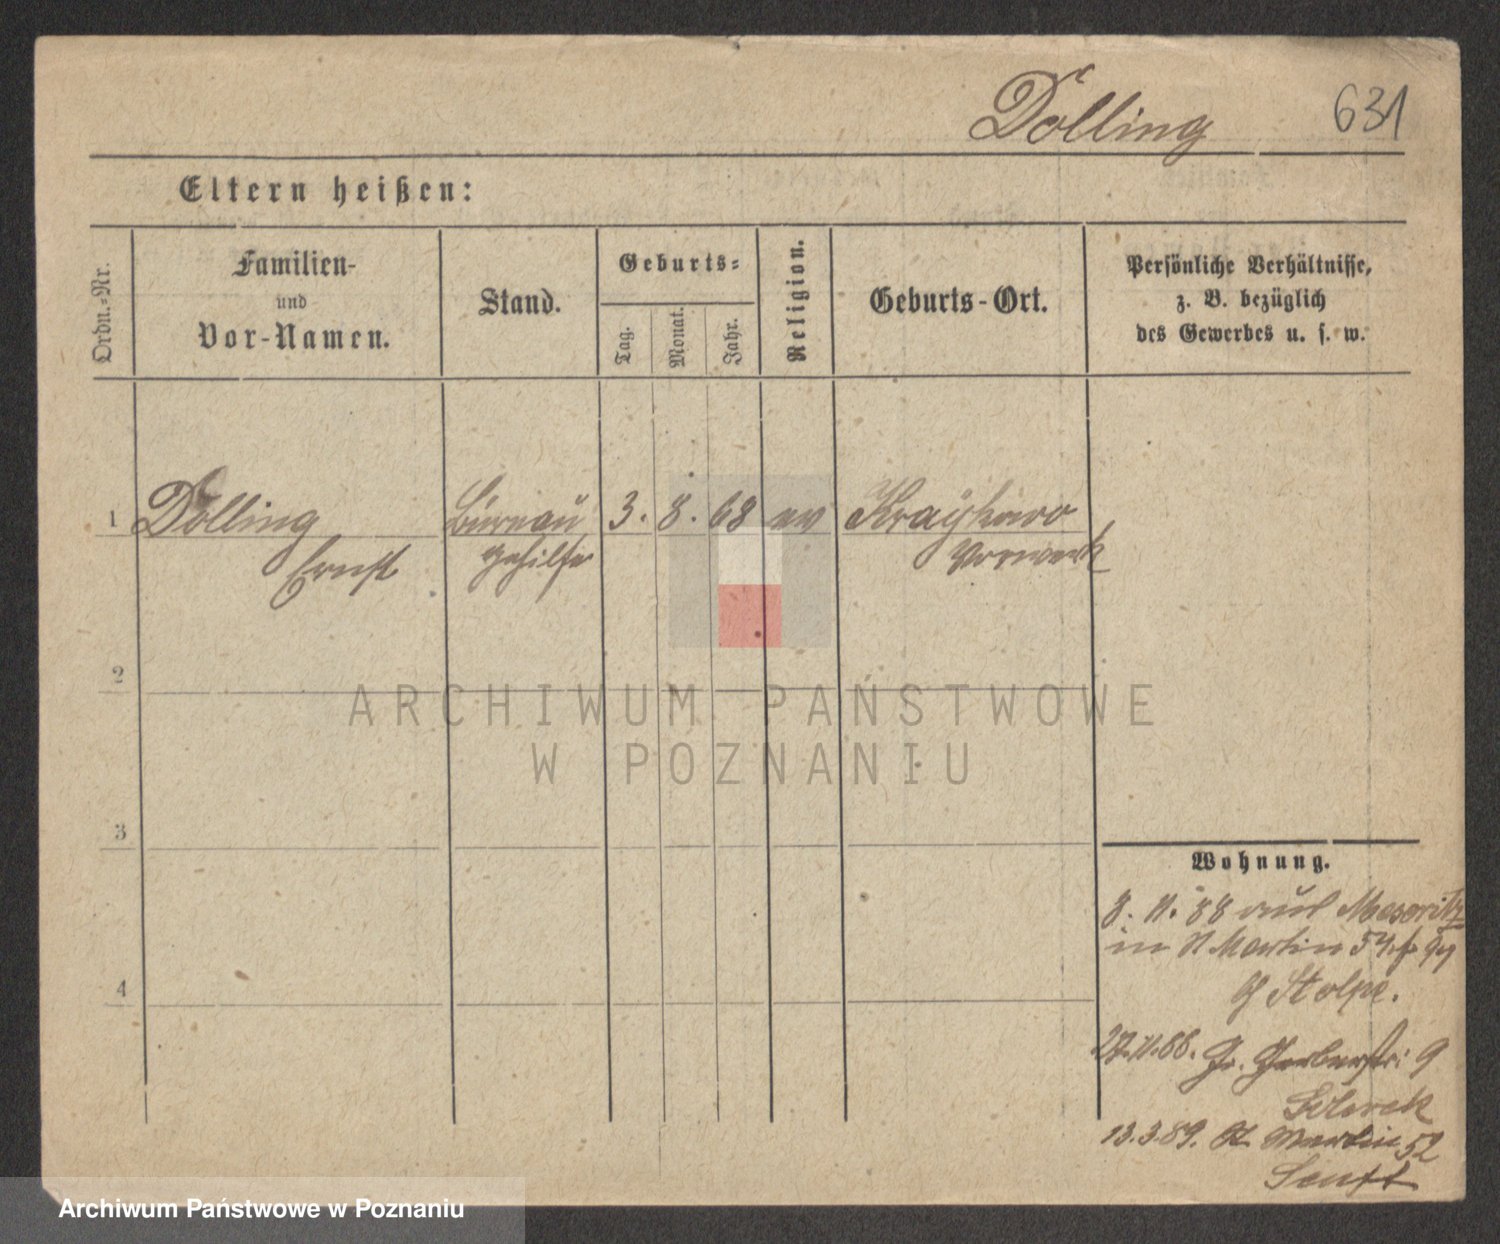 Dolling 631
Eltern heißen:
Ordn.-Nr.
Familien-
und
Vor-Namen.
Stand.
Geburts-
Tag.
Monat.
Jahr.
Religion.
Geburts-Ort.
Persönliche Verhältnisse,
z. B. bezüglich
des Gewerbes u. s. w.
1 Dolling Büreau 3. 8. 68 ev
Ernst gehilfe Vorwerk
2
ARCHIWUM PAŃSTWOWE
W POZNANIU
3
Wohnung.
8. 11. 88 aus Meseritz
in St Martin 54
Stolpe.
4
27.11.88. Gr. Gerberstr: 9
13.3.89. St Martin 52
Senft
Archiwum Państwowe w Poznaniu